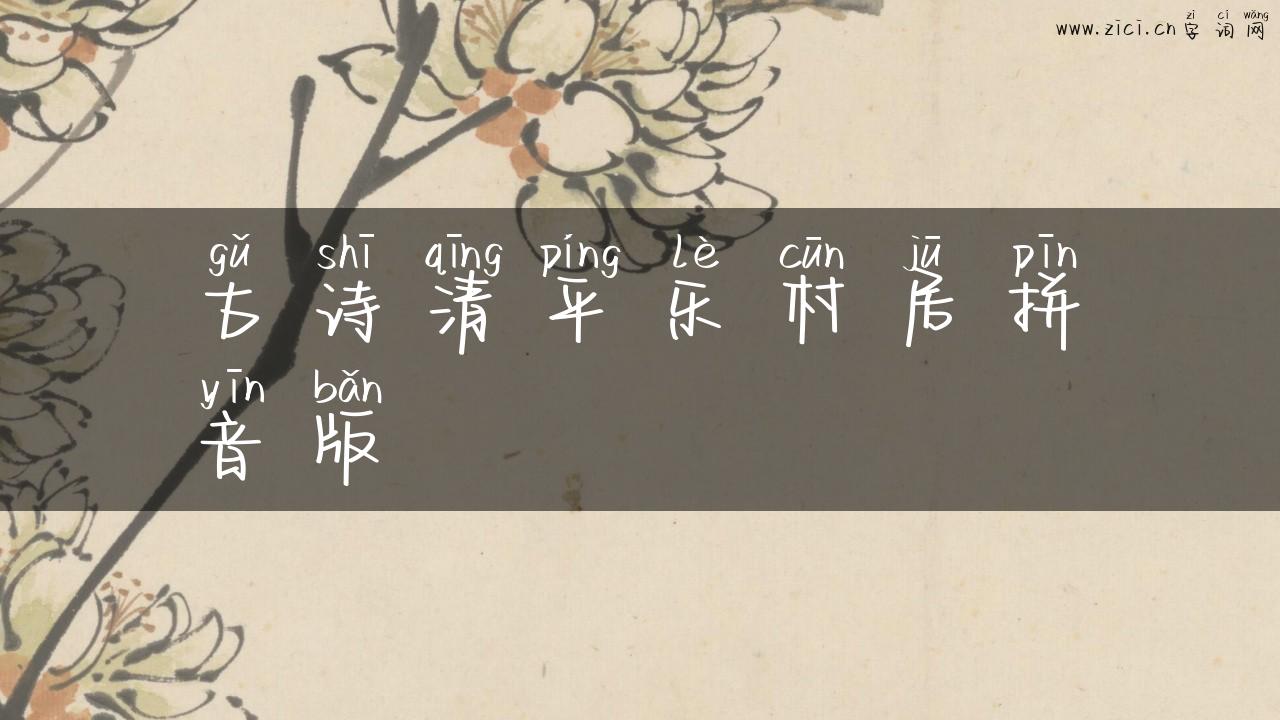 zì cí wǎng
www.zici.cn 字词网
gǔ shī qīng píng lè cūn jū pīn
古诗清平乐村居拼
yīn bǎn
音版